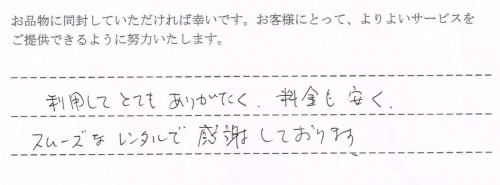 お品物に同封していただければ幸いです。お客様にとって、よりよいサービスを
ご提供できるように努力いたします。
利用してとてもありがたく、料金も安く、
スムーズなレンタルで感謝しております